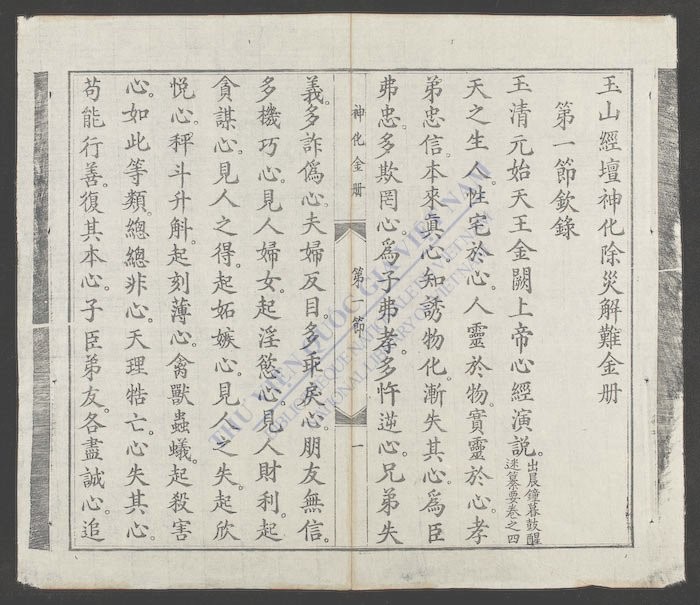 玉山經壇神化除災解難金册
第一節欽錄
玉清元始天王金闕上帝心經演說。出晨鐘暮鼓醒
迷纂要卷之四
天之生人。性宅於心。人靈於物。實靈於心。孝
弟忠信。本來眞心。知誘物化。漸失其心。爲臣
弗忠。多欺罔心。爲子弗孝。多忤逆心。兄弟失
神化金册 第一節 一
義。多詐僞心。夫婦反目。多乖戾心。朋友無信。
多機巧心。見人婦女。起淫慾心。見人財利。起
貪謀心。見人之得。起妬嫉心。見人之失。起欣
悅心。秤斗升斛。起刻薄心。禽獸蟲蟻。起殺害
心。如此等類。總總非心。天理牿亡。心失其心。
苟能行善。復其本心。子臣弟友。各盡誠心。追
THƯ VIỆN QUỐC GIA VIỆT NAM
BIBLIOTHEQUE NATIONALE DU VIETNAM
NATIONAL LIBRARY OF VIETNAM